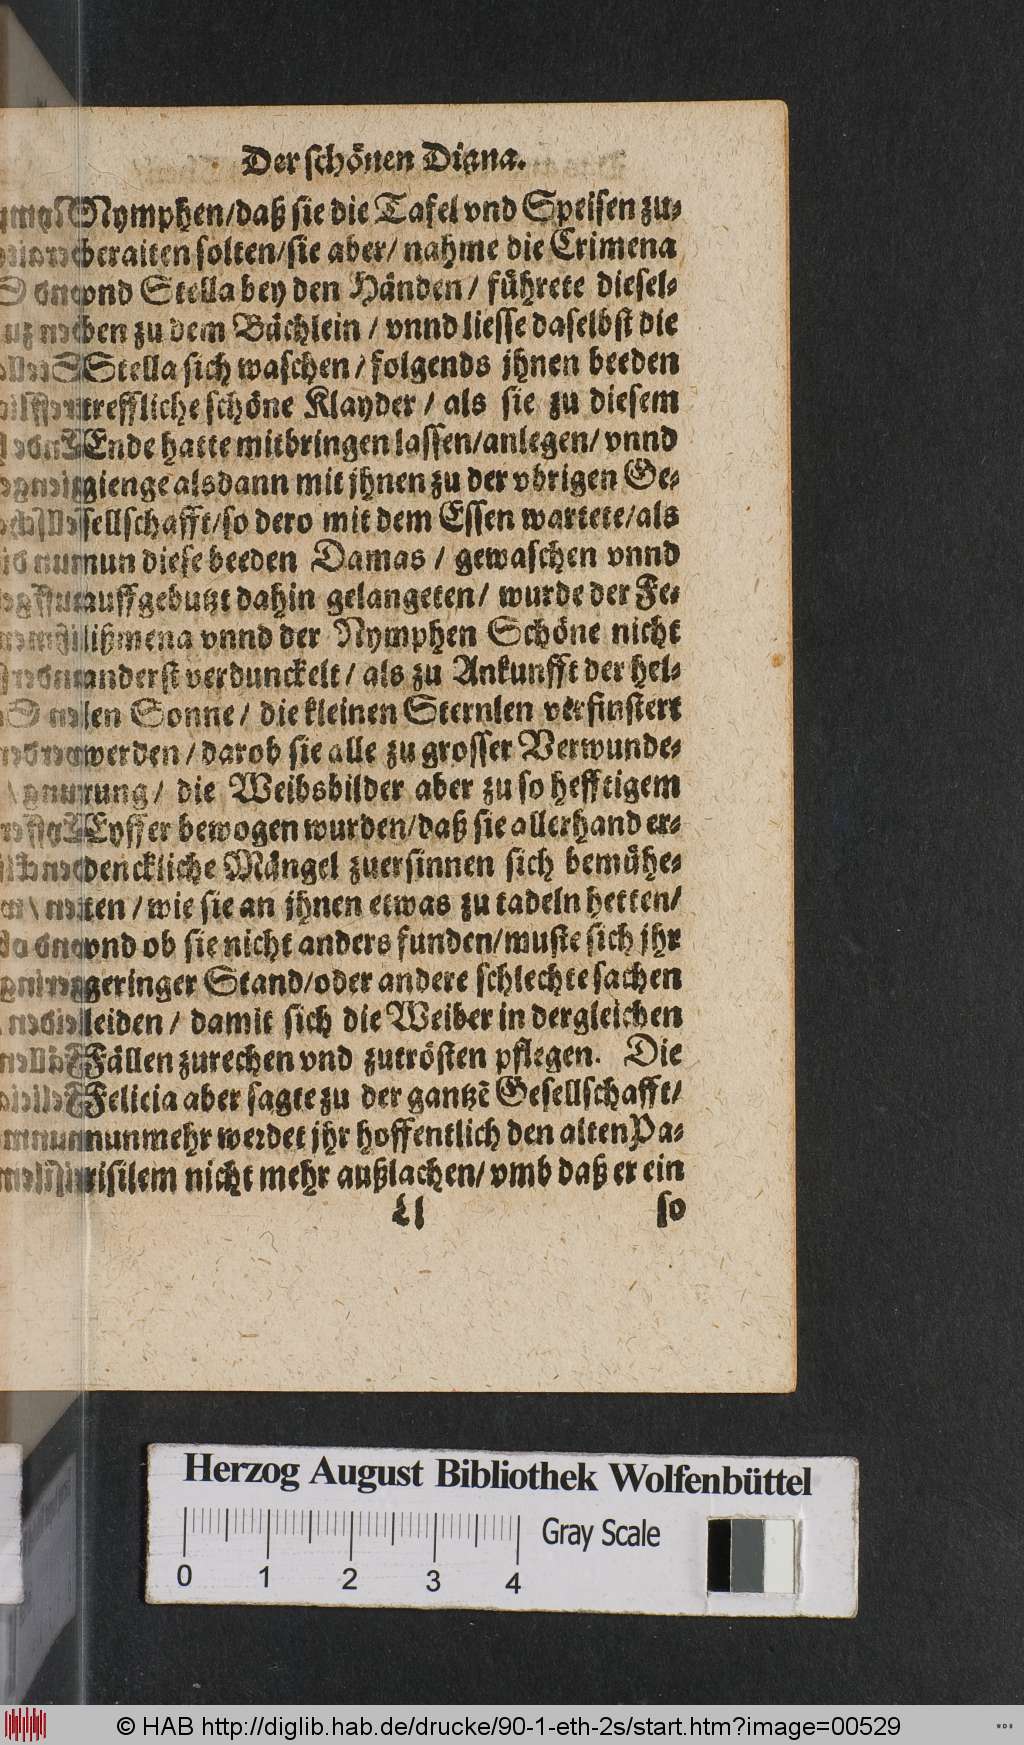 Der schönen Diana.
Nymphen/daß sie die Tafel vnd Speisen zu-
beraiten solten/sie aber/ nahme die Crimena
vnd Stella bey den Händen/ führete diesel-
ben zu dem Bächlein / vnnd liesse daselbst die
Stella sich waschen/ folgends jhnen beeden
treffliche schöne Klayder / als sie zu diesem
Ende hatte mitbringen lassen/anlegen/ vnnd
gienge alsdann mit jhnen zu der vbrigen Ge-
sellschafft/so dero mit dem Essen wartete/als
nun diese beeden Damas / gewaschen vnnd
auffgebutzt dahin gelangeten/ wurde der Fe-
lißmena vnnd der Nymphen Schöne nicht
anderst verdunckelt/ als zu Ankunfft der hel-
len Sonne/ die kleinen Sternlen verfinstert
werden / darob sie alle zu grosser Verwunde-
rung/ die Weibsbilder aber zu so hefftigem
Eyffer bewogen wurden/daß sie allerhand er-
denckliche Mängel zuersinnen sich bemühe-
ten / wie sie an jhnen etwas zu tadeln hetten/
vnd ob sie nicht anders funden/muste sich jhr
geringer Stand/oder andere schlechte sachen
leiden/ damit sich die Weiber in dergleichen
Fällen zurechen vnd zutrösten pflegen. Die
Felicia aber sagte zu der gantzē Gesellschafft/
nunmehr werdet jhr hoffentlich den alten Pa-
risilem nicht mehr außlachen/ vmb daß er ein
Ll so
Herzog August Bibliothek Wolfenbüttel
0 1 2 3 4 Gray Scale
© HAB http://diglib.hab.de/drucke/90-1-eth-2s/start.htm?image=00529